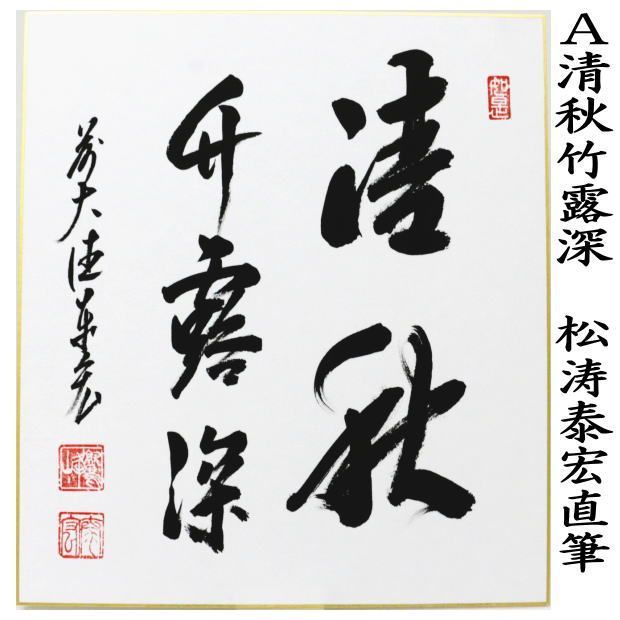 A清秋竹露深　松涛泰宏直筆
清秋
竹露深
前大徳泰宏